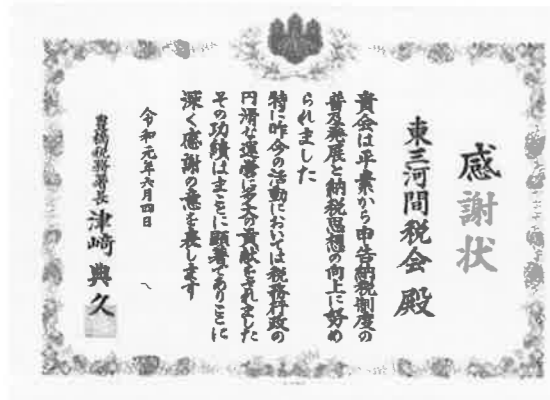 感謝状
東三河間税会 殿
貴会は平素から申告納税制度の
普及発展と納税思想の向上に努め
られました
特に昨今の活動においては税務行政の
円滑な運営に多大の貢献をされました
その功績はまことに顕著でありここに
深く感謝の意を表します
令和元年六月四日
豊橋税務署長 津崎 典久